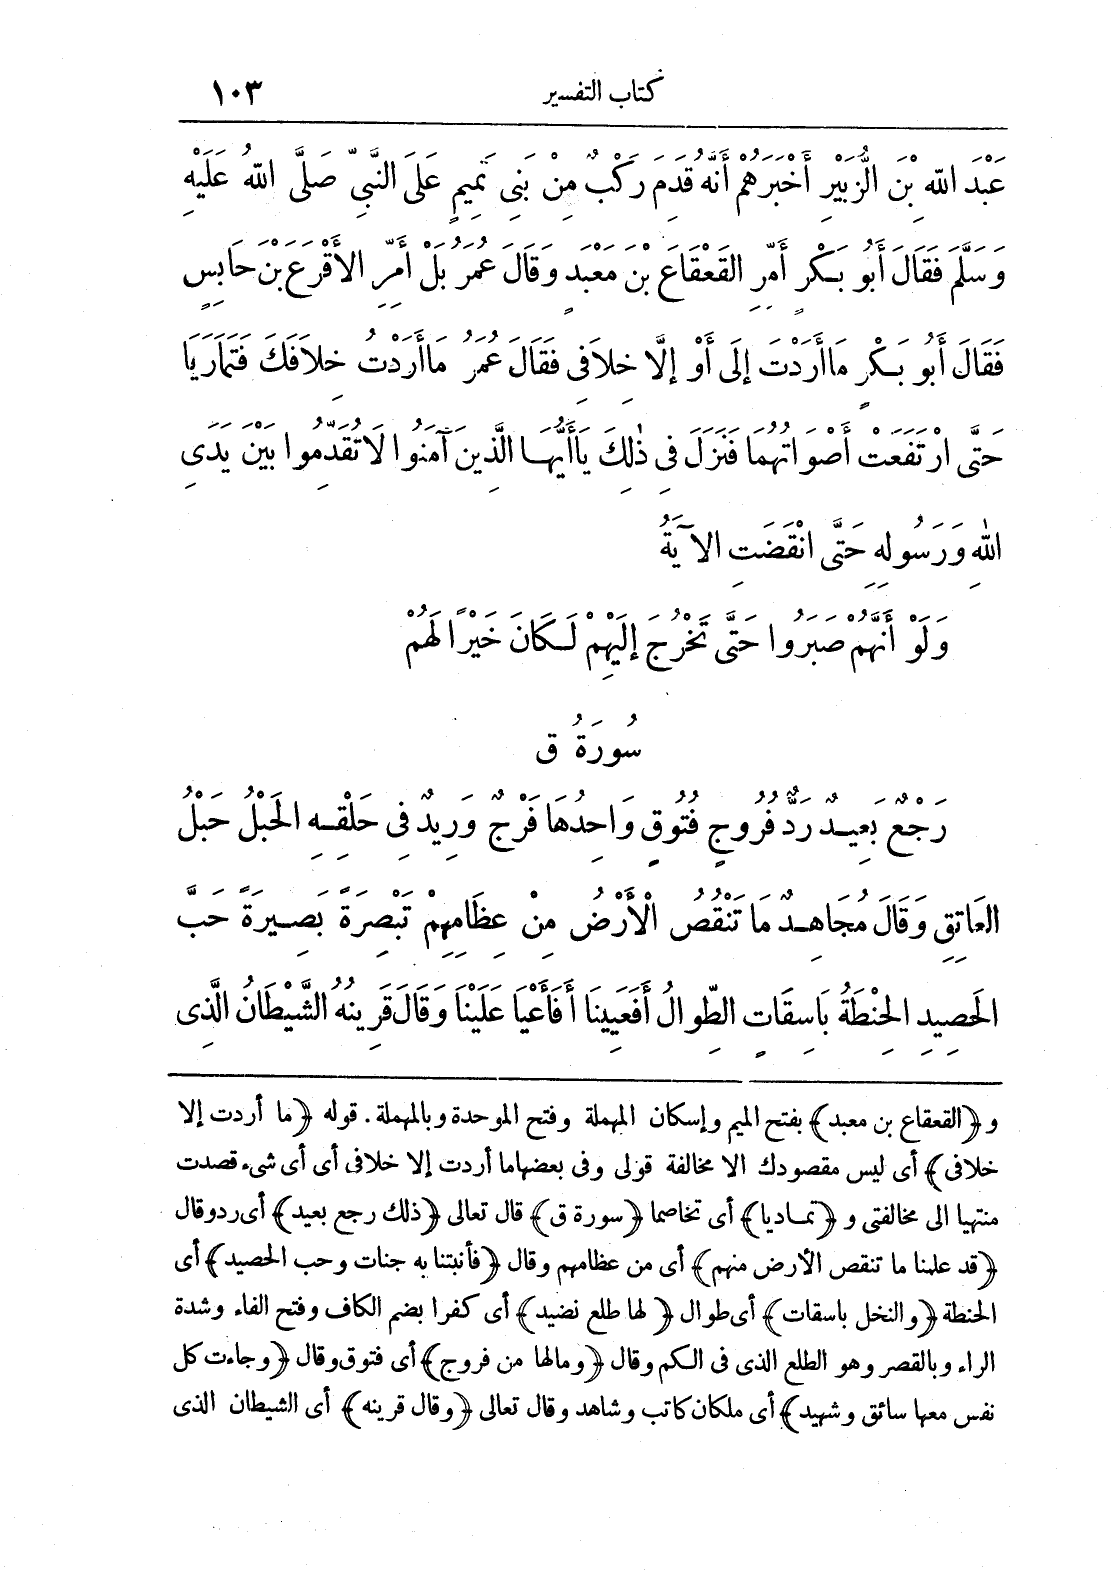 كتاب التفسير ١٠٣
عَبْدَ اللهِ بْنَ الزُّبَيْرِ أَخْبَرَهُمْ أَنَّهُ قَدِمَ رَكْبٌ مِنْ بَنِى تَمِيمٍ عَلَى النَّبِىِّ صَلَّى اللهُ عَلَيْهِ
وَسَلَّمَ فَقَالَ أَبُو بَكْرٍ أَمِّرِ القَعْقَاعَ بْنَ مَعْبَدٍ وَقَالَ عُمَرُ بَلْ أَمِّرِ الأَقْرَعَ بْنَ حَابِسٍ
فَقَالَ أَبُو بَكْرٍ مَا أَرَدْتَ إِلَى أَوْ إِلَّا خِلَافِى فَقَالَ عُمَرُ مَا أَرَدْتُ خِلَافَكَ فَتَمَارَيَا
حَتَّى ارْتَفَعَتْ أَصْوَاتُهُمَا فَنَزَلَ فِى ذٰلِكَ يَا أَيُّهَا الَّذِينَ آمَنُوا لَا تُقَدِّمُوا بَيْنَ يَدَىِ
اللهِ وَرَسُولِهِ حَتَّى انْقَضَتِ الآيَةُ
وَلَوْ أَنَّهُمْ صَبَرُوا حَتَّى تَخْرُجَ إِلَيْهِمْ لَكَانَ خَيْرًا لَهُمْ
سُورَةُ ق
رَجْعٌ بَعِيدٌ رَدٌّ فُرُوجٍ فُتُوقٍ وَاحِدُهَا فَرْجٌ وَرِيدٌ فِى حَلْقِهِ الحَبْلُ حَبْلُ
العَاتِقِ وَقَالَ مُجَاهِدٌ مَا تَنْقُصُ الْأَرْضُ مِنْ عِظَامِهِمْ تَبْصِرَةً بَصِيرَةً حَبَّ
الحَصِيدِ الحِنْطَةُ بَاسِقَاتٍ الطِّوَالُ أَفَعَيِينَا أَفَأَعْيَا عَلَيْنَا وَقَالَ قَرِينُهُ الشَّيْطَانُ الَّذِى
و ﴿القعقاع بن معبد﴾ بفتح الميم وإسكان المهملة وفتح الموحدة وبالمهملة. قوله ﴿ما أردت إلا
خلافى﴾ أى ليس مقصودك الا مخالفة قولى وفى بعضها ما أردت إلا خلافى أى أى شىء قصدت
منتهيا الى مخالفتى و ﴿تماديا﴾ أى تخاصما ﴿سورة ق﴾ قال تعالى ﴿ذلك رجع بعيد﴾ أى رد وقال
﴿قد علمنا ما تنقص الأرض منهم﴾ أى من عظامهم وقال ﴿فأنبتنا به جنات وحب الحصيد﴾ أى
الحنطة ﴿والنخل باسقات﴾ أى طوال ﴿لها طلع نضيد﴾ أى كفرا بضم الكاف وفتح الفاء وشدة
الراء وبالقصر وهو الطلع الذى فى الكم وقال ﴿ومالها من فروج﴾ أى فتوق وقال ﴿وجاءت كل
نفس معها سائق وشهيد﴾ أى ملكان كاتب وشاهد وقال تعالى ﴿وقال قرينه﴾ أى الشيطان الذى